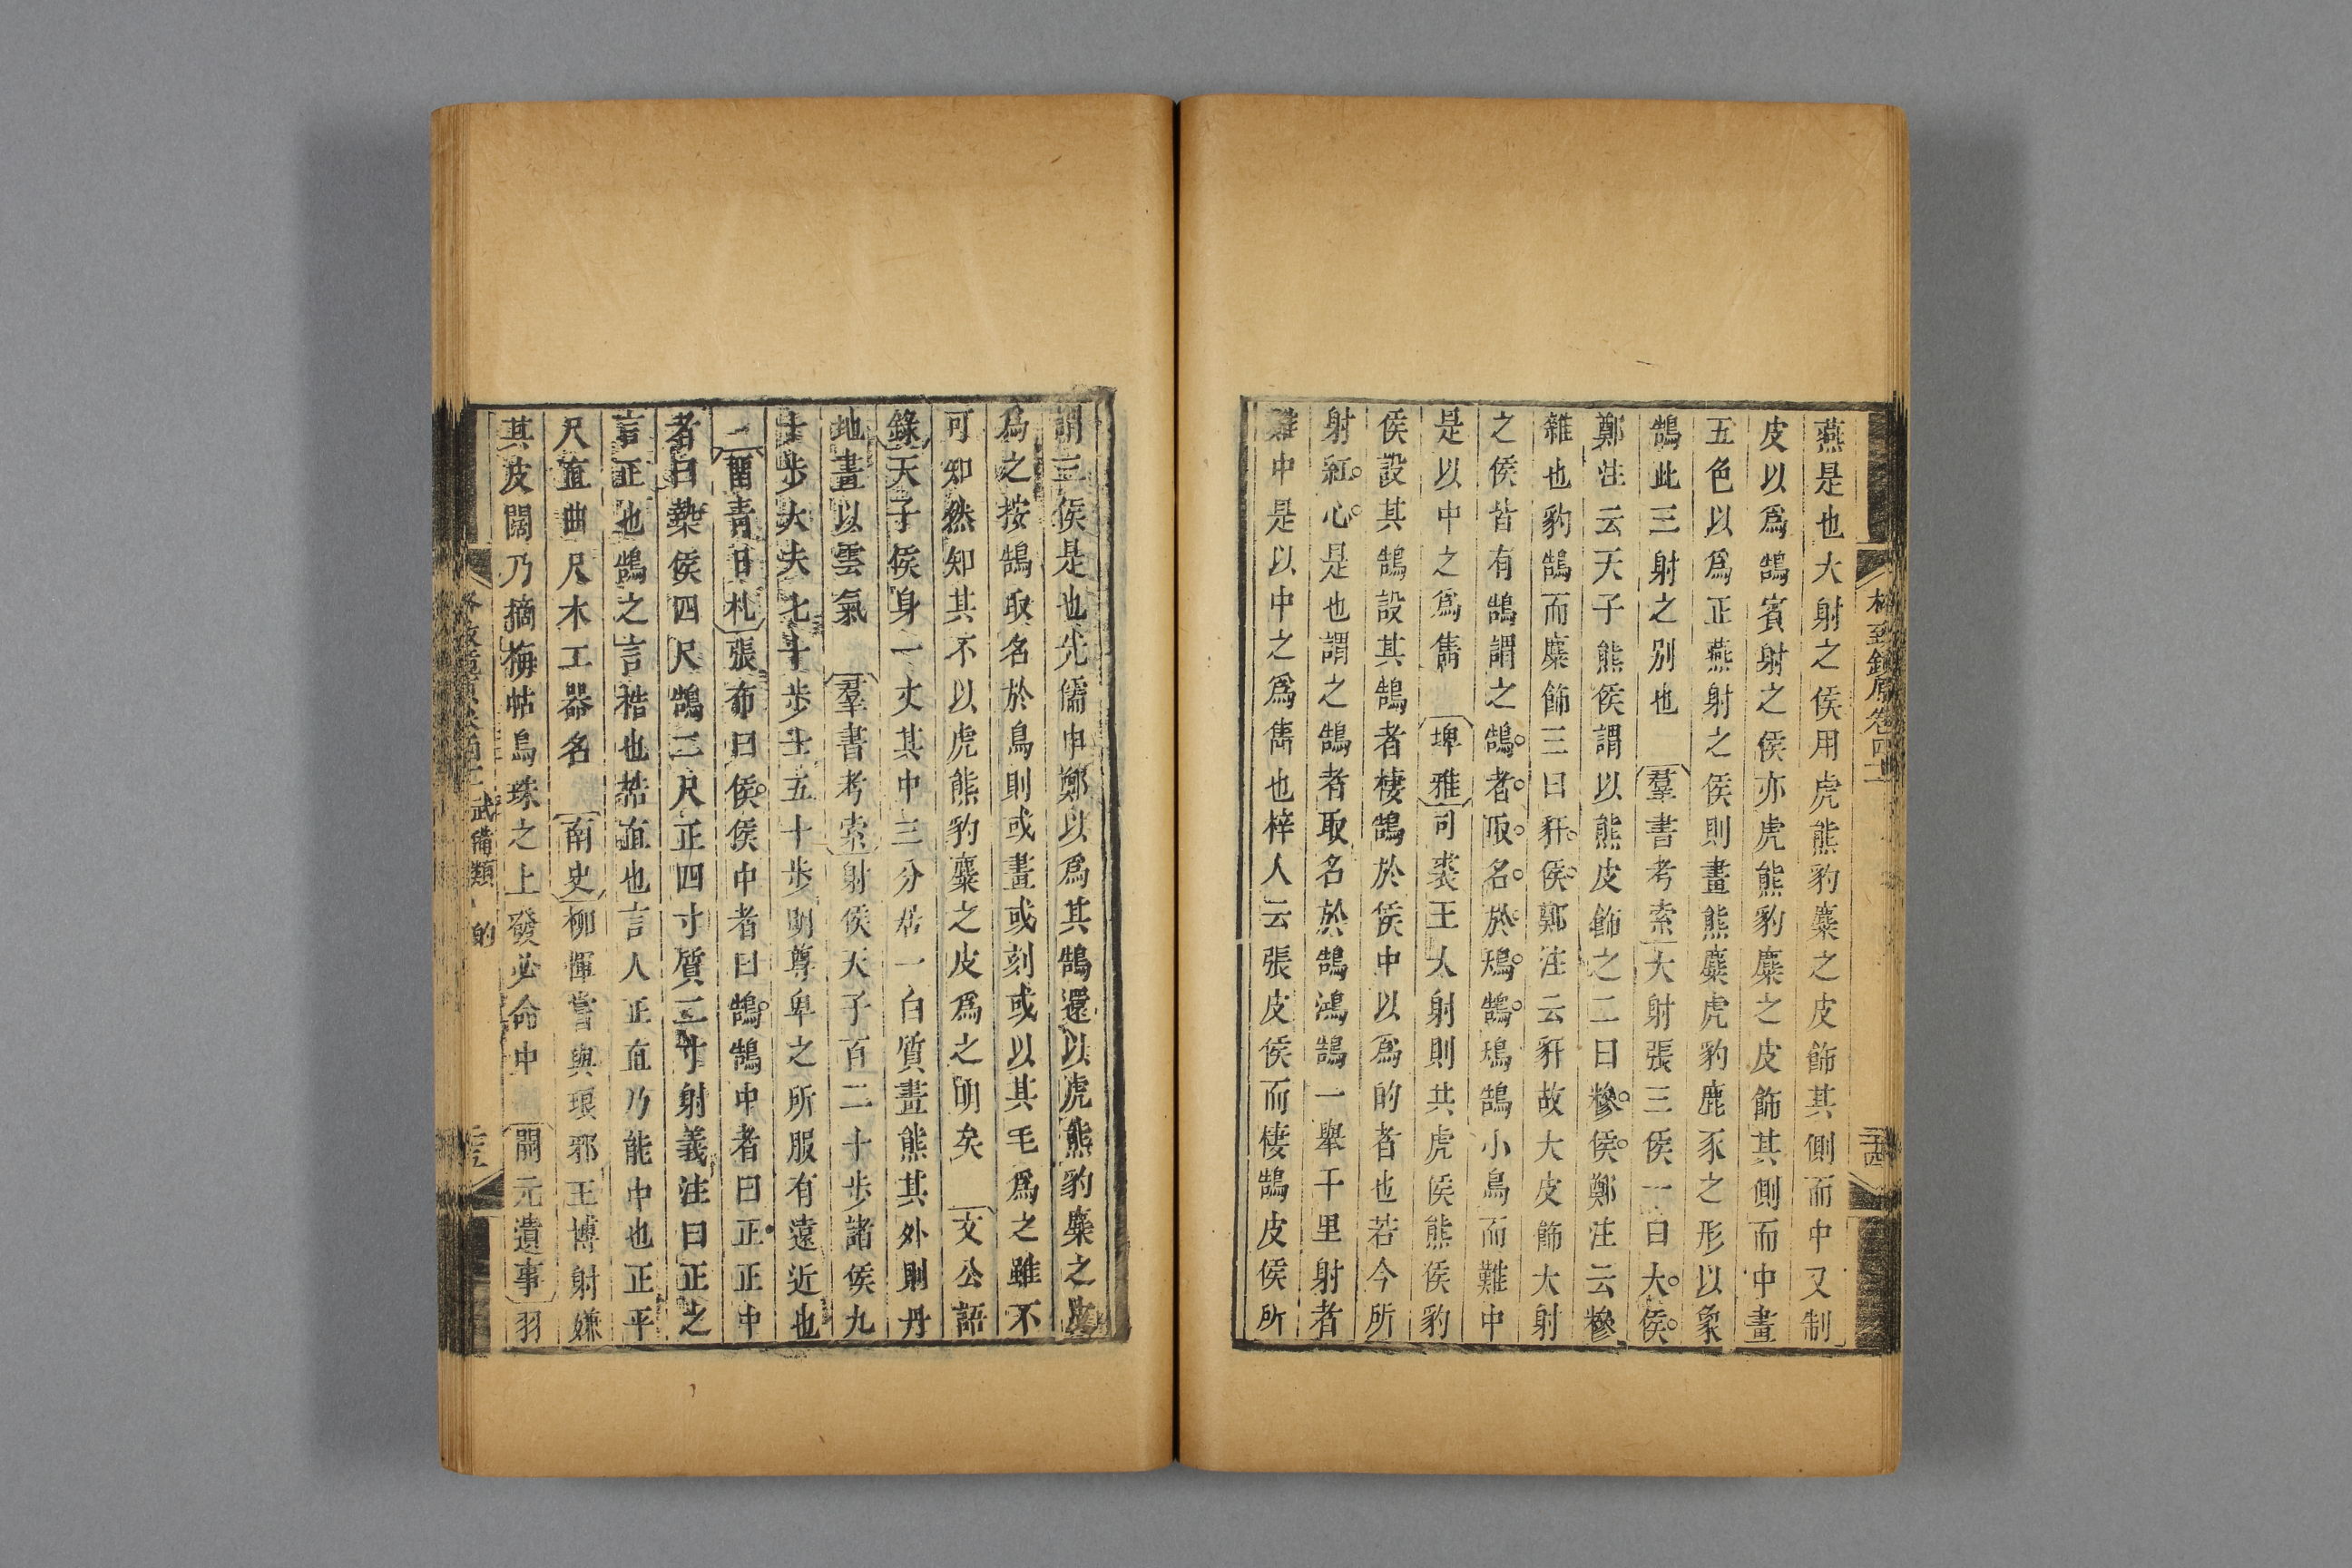 格致鏡原卷四十二
二十四
燕是也大射之侯用虎熊豹麋之皮飾其側而中又制
皮以爲鵠賓射之侯亦虎熊豹麋之皮飾其側而中畫
五色以爲正燕射之侯則畫熊麋虎豹鹿豕之形以象
鵠此三射之別也 羣書考索大射張三侯一曰大侯
鄭注云天子熊侯謂以熊皮飾之二曰糝侯鄭注云糝
雜也豹鵠而麋飾三曰豻侯鄭注云豻故大皮飾大射
之侯皆有鵠謂之鵠者取名於鳱鵠鳱鵠小鳥而難中
是以中之爲雋 埤雅司裘王大射則共虎侯熊侯豹
侯設其鵠設其鵠者棲鵠於侯中以爲的者也若今所
射紅心是也謂之鵠者取名於鵠鴻鵠一舉千里射者
難中是以中之爲雋也梓人云張皮侯而棲鵠皮侯所
謂三侯是也先儒申鄭以爲其鵠還以虎熊豹麋之皮
爲之按鵠取名於鳥則或畫或刻或以其毛爲之雖不
可知然知其不以虎熊豹麋之皮爲之明矣 文公語
錄天子侯身一丈其中三分居一白質畫熊其外則丹
地畫以雲氣 羣書考索射侯天子百二十步諸侯九
十步大夫七十步士五十步明尊卑之所服有遠近也
留青日札張布曰侯侯中者曰鵠鵠中者曰正正中
者曰槷侯四尺鵠二尺正四寸質二寸射義注曰正之
言正也鵠之言梏也梏直也言人正直乃能中也正平
尺直曲尺木工器名 南史柳惲嘗與琅邪王博射嫌
其皮闊乃摘梅帖烏珠之上發必命中 開元遺事羽
武備類 的
二十五